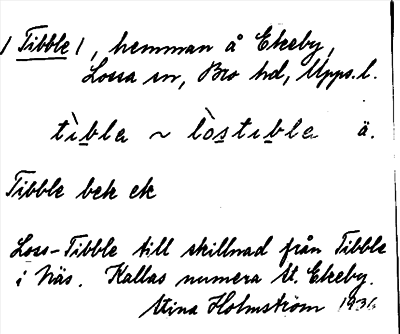 / Tibble /, hemman å Ekeby,
Lossa sn, Bro hd, Upps. l.
tìbla ~ lòstibla ä.
Tibble bek ek
Loss-Tibble till skillnad från Tibble
i Näs. Kallas numera St. Ekeby.
Stina Holmström 1931